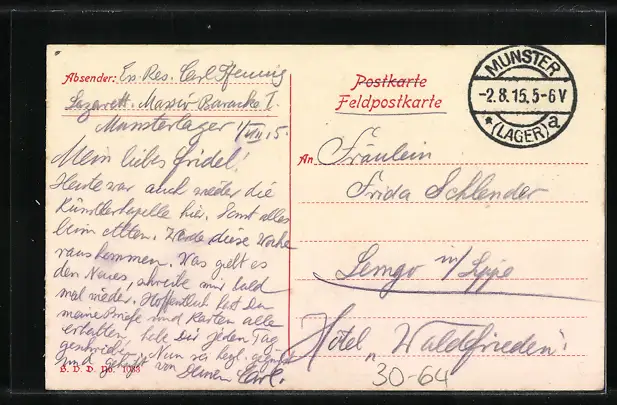 Absender: Ers. Res. Carl Pfennig
Lazarett. Massiv-Baracke I.
Munsterlager 1/VIII 15.
Mein liebes Fridel!
Heute war auch wieder die
Künstlerkapelle hie. Sonst alles
beim alten. Werde diese Woche
rauskommen. Was gibt es
den Neues, schreibe mir bald
mal wieder. Hoffentlich hast Du
meine Briefe und Karten alle
erhalten, habe Dir jeden Tag
geschrieben. Nun sei herzl. gegrüßt
und geküßt von
Deinem Carl.
B. D. D. No. 1033
Postkarte
Feldpostkarte
MUNSTER
-2.8.15.5-6V
* (LAGER) a
An Fräulein
Frida Schlender
Lemgo in/Lippe
Hotel „Waldfrieden"
30-64